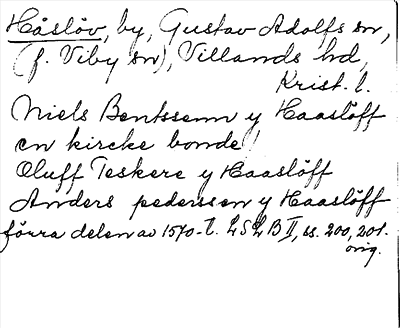 Håslöv, by, Gustav Adolfs sn,
(f. Viby sn), Villands hd,
Krist. l.
Niels Bentssenn y Haaslöff
en kircke bonde
Oluff Teskere y Haaslöff
Anders pederssen y Haaslöff
förra delen av 1570-t. LSLB II, ss. 200, 201.
orig.